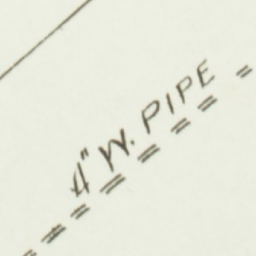 4" W. PIPE